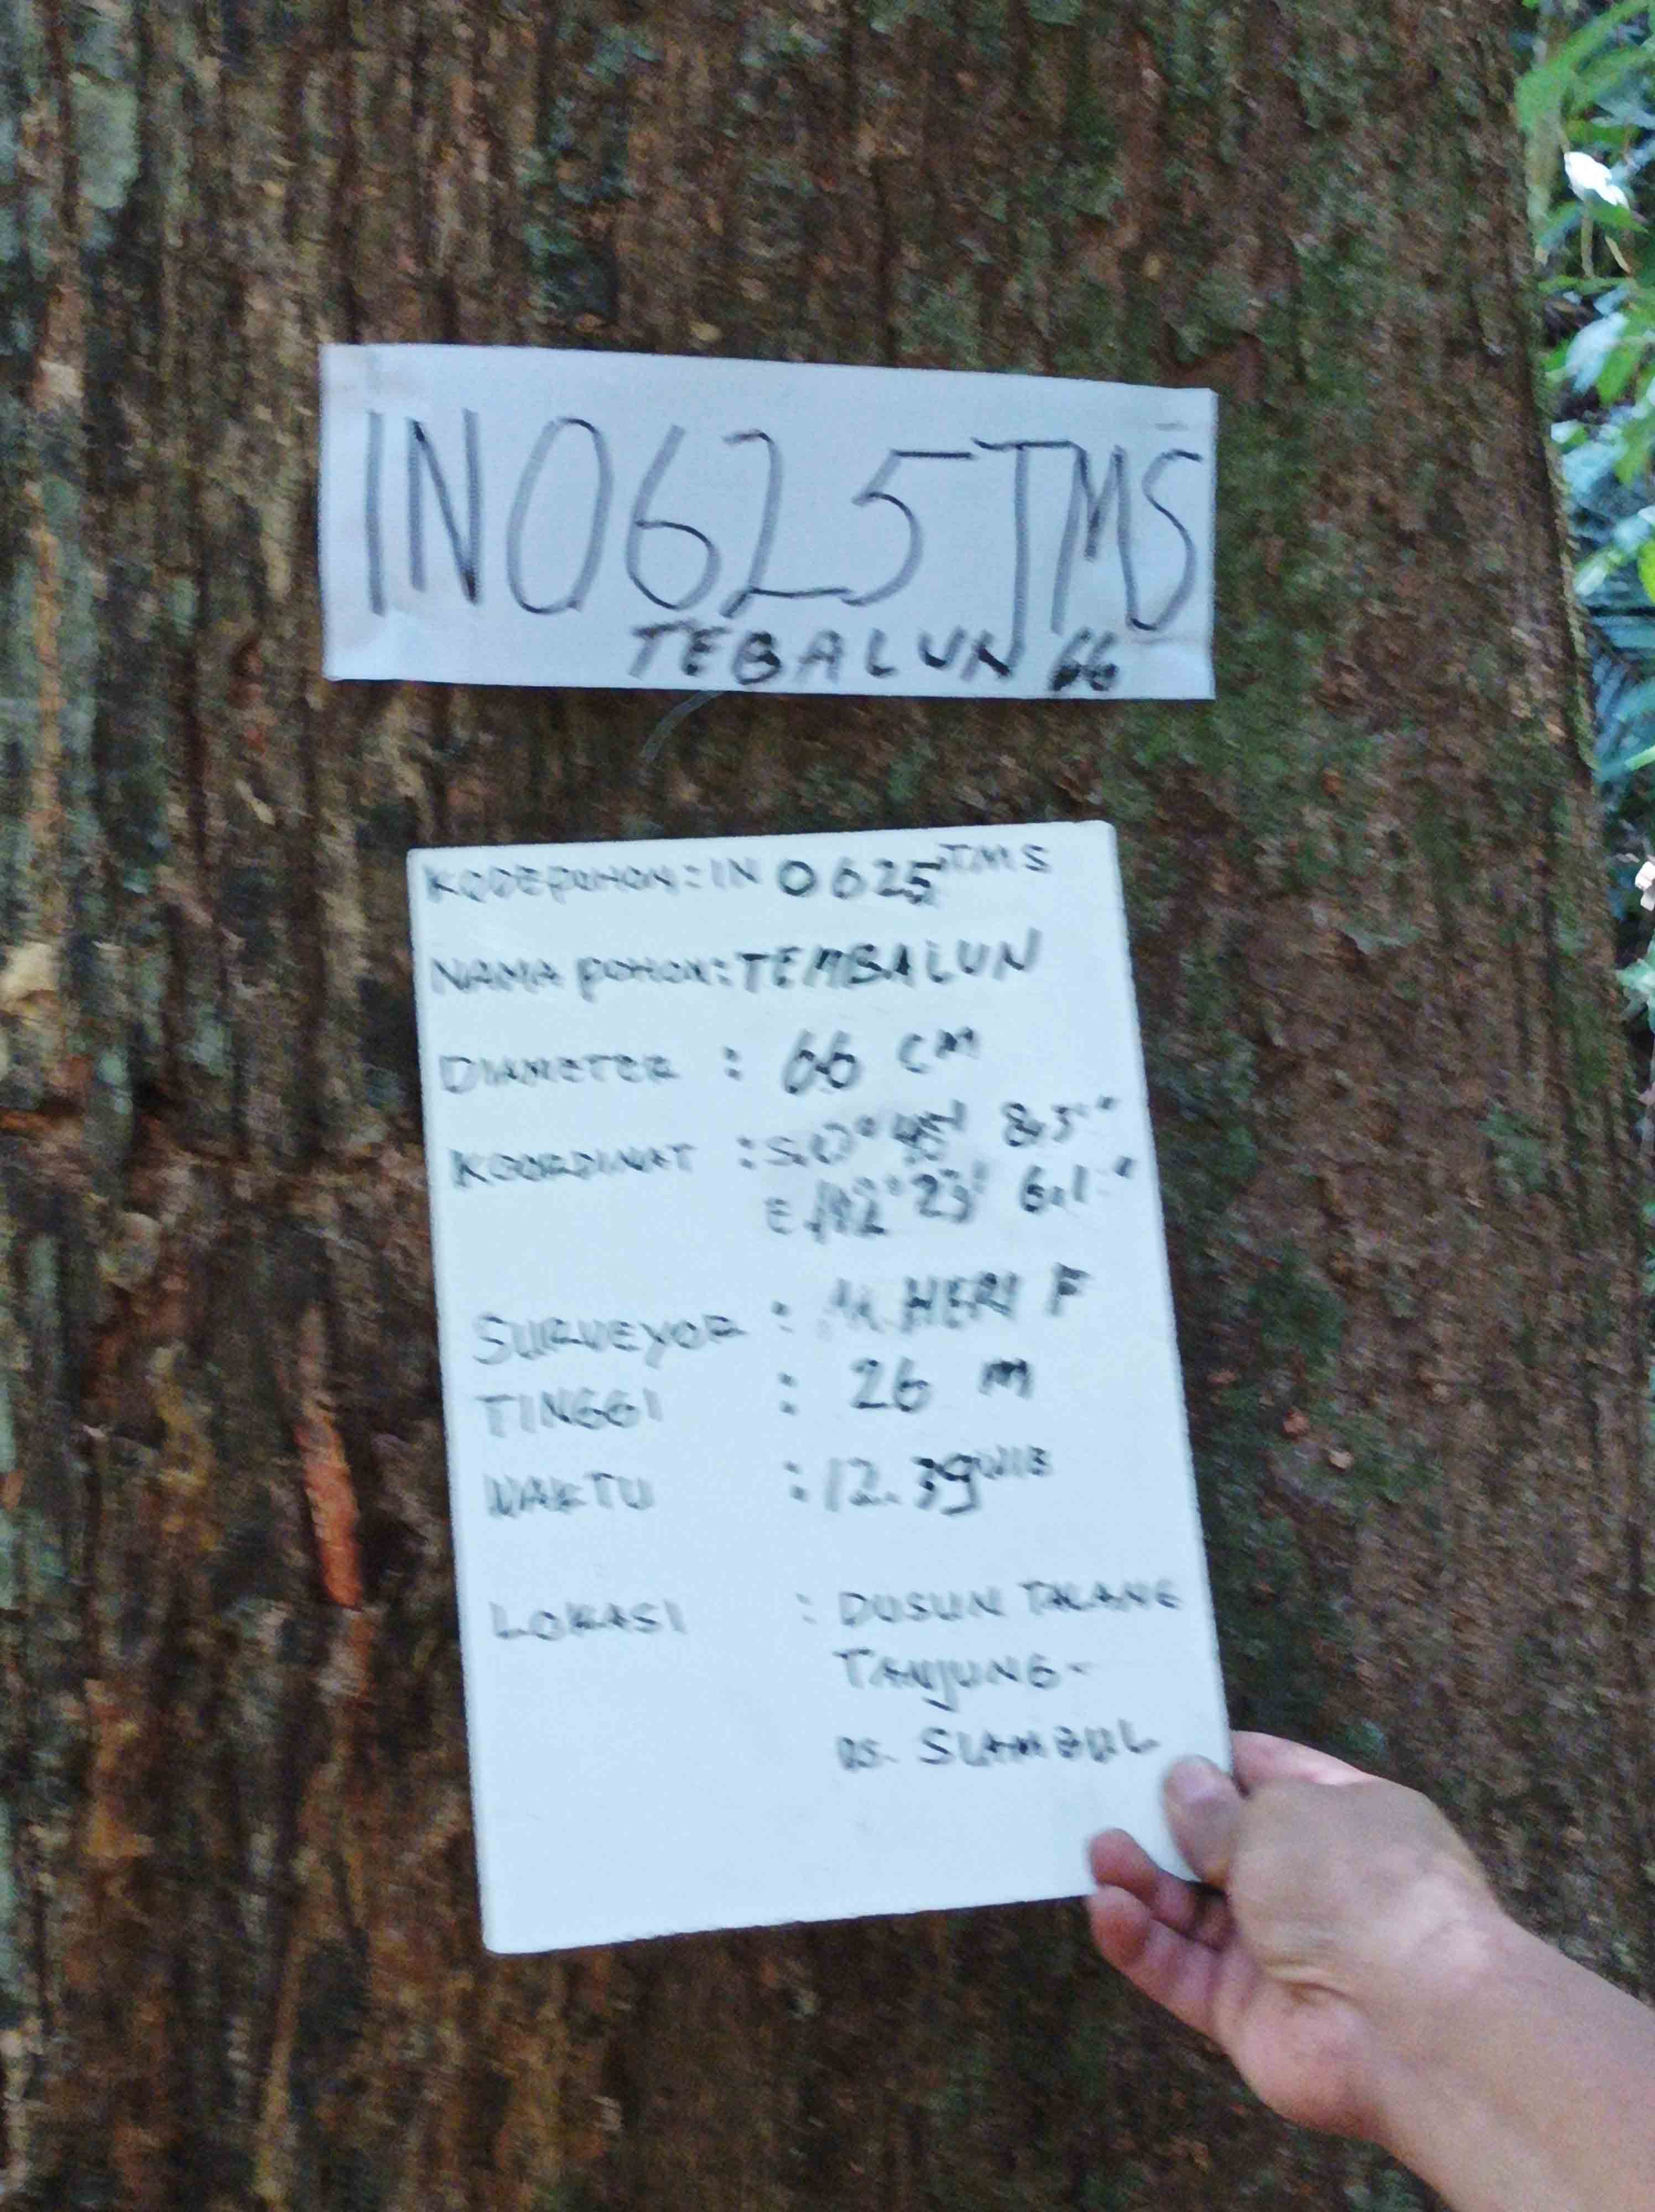 IN0625TMS
TEBALUN 66
KODE POHON: IN 0625 TMS
NAMA POHON: TEMBALUN
DIAMETER : 66 CM
KOORDINAT : S.0° 45' 8,5"
23' 6,1"
SURVEYOR : M. HERI F
TINGGI : 26 M
WAKTU : 12.39 WIB
LOKASI : DUSUN TALANG
TANJUNG-
DS. SLAMBUL